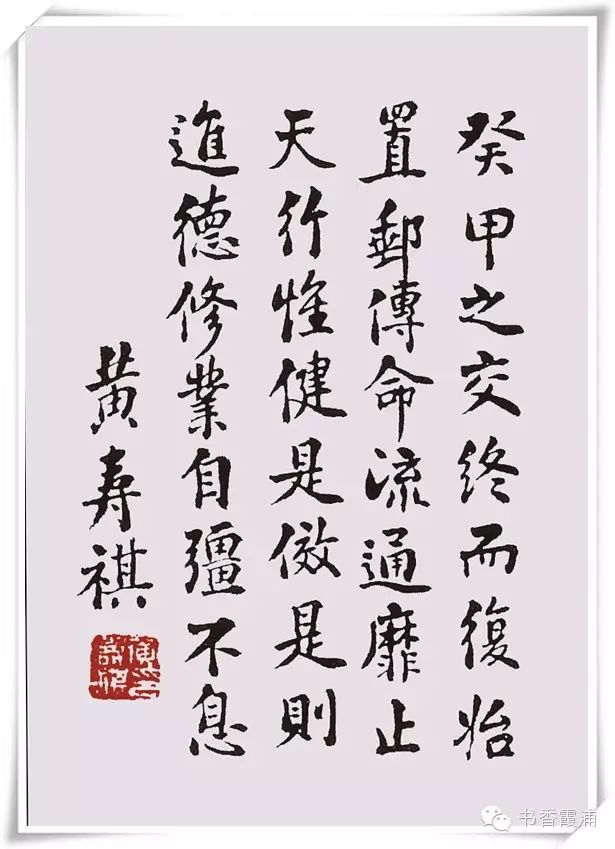 癸甲之交終而復始
置郵傳命流通靡止
天行惟健是傚是則
進德修業自彊不息
黄寿祺
书香霞浦